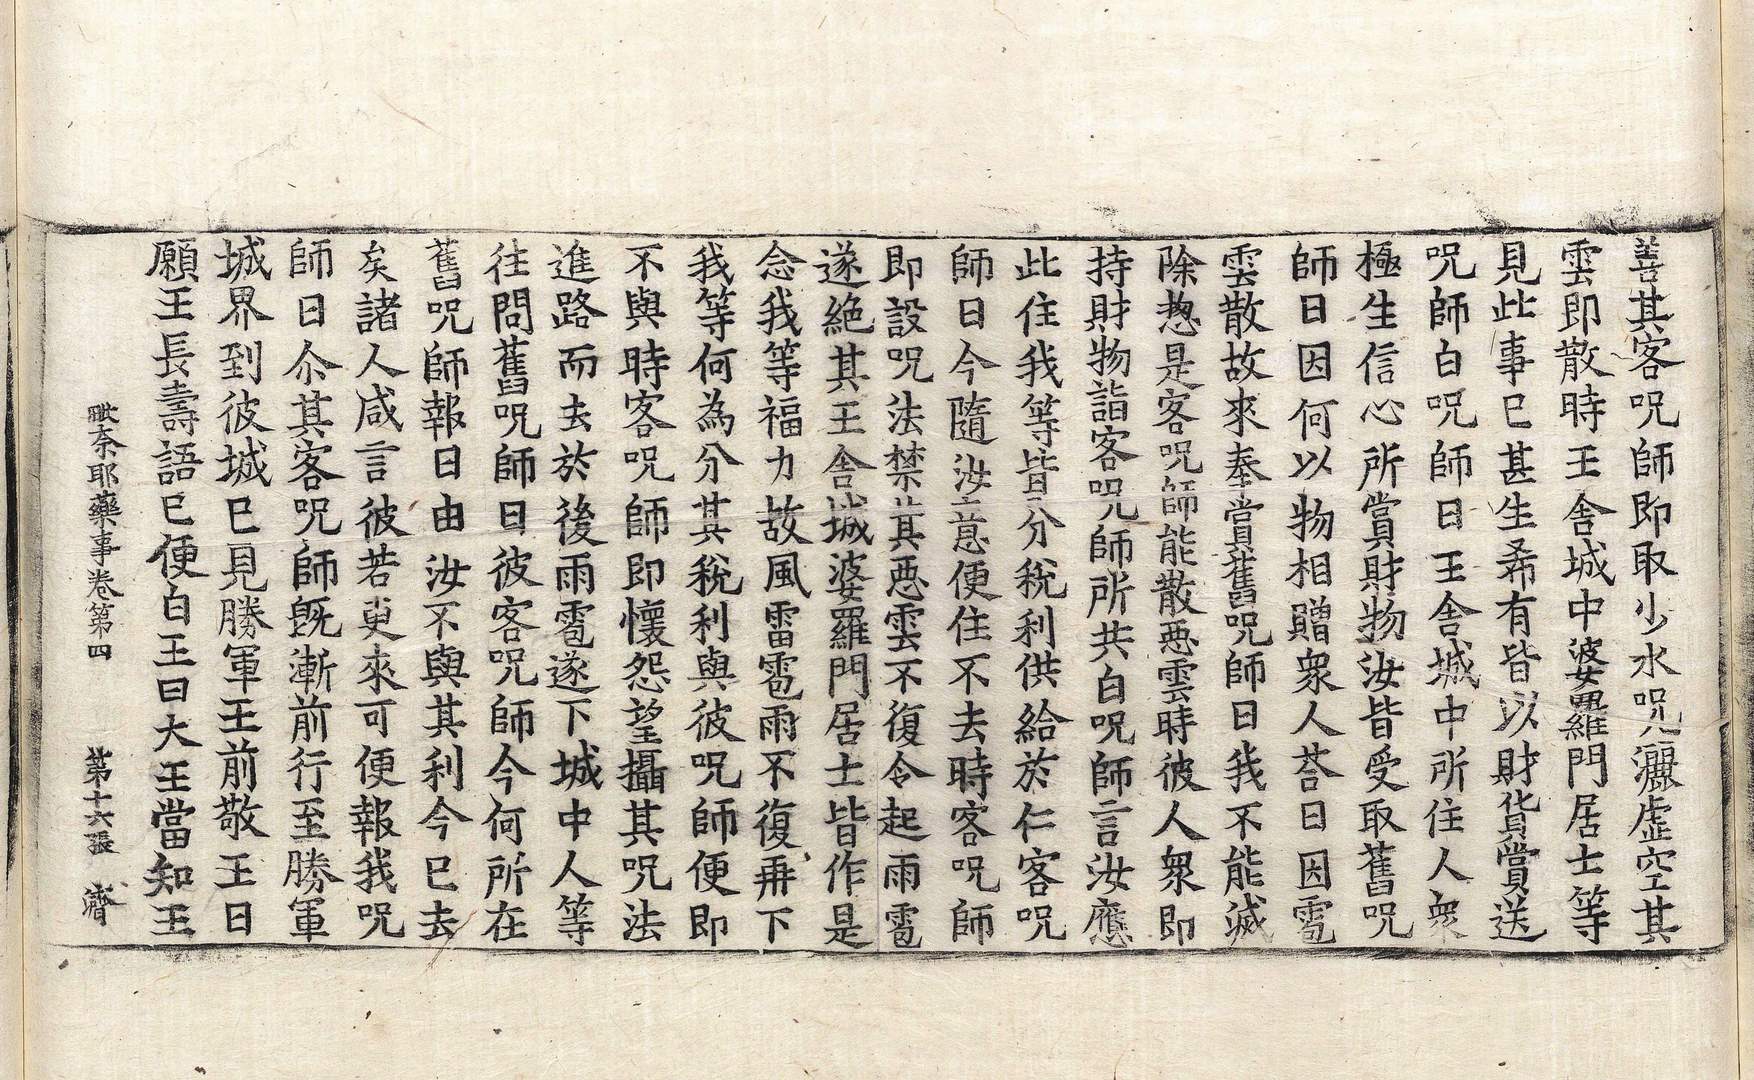 善其客呪師即取少水呪灑虛空其
雲即散時王舍城中婆羅門居士等
見此事已甚生希有皆以財貨賞送
呪師白呪師曰王舍城中所住人衆
極生信心所賞財物汝皆受取舊呪
師曰因何以物相贈衆人荅曰因雹
雲散故來奉賞舊呪師曰我不能滅
除惣是客呪師能散惡雲時彼人衆即
持財物詣客呪師所共白呪師言汝應
此住我等皆分稅利供給於仁客呪
師曰今隨汝意便住不去時客呪師
即設呪法禁其惡雲不復令起雨雹
遂絶其王舍城婆羅門居士皆作是
念我等福力故風雷雹雨不復再下
我等何為分其稅利與彼呪師便即
不與時客呪師即懷怨望攝其呪法
進路而去於後雨雹遂下城中人等
往問舊呪師曰彼客呪師今何所在
舊呪師報曰由汝不與其利今已去
矣諸人咸言彼若更來可便報我呪
師曰尒其客呪師既漸前行至勝軍
城界到彼城已見勝軍王前敬王曰
願王長壽語已便白王曰大王當知王
毗奈耶藥事卷第四 第十六張 濟